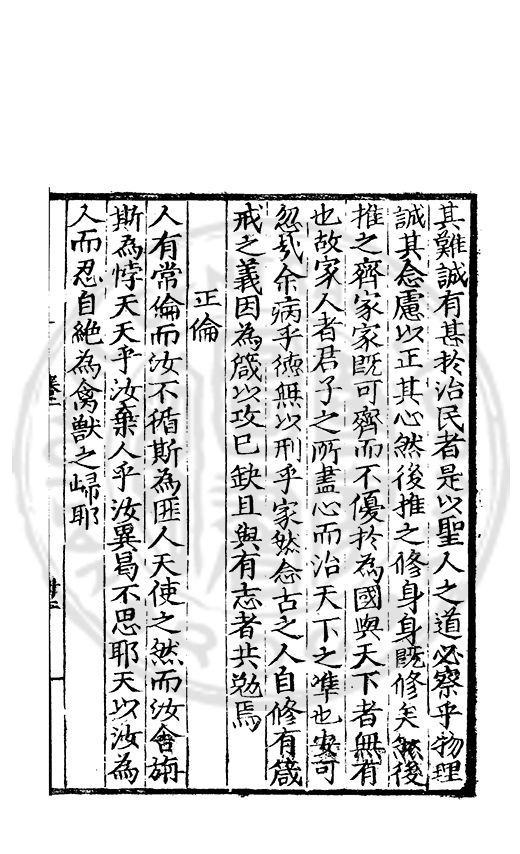 其難誠有甚扵治民者是以聖人之道必察乎物理
誠其念慮以正其心然後推之修身身既修矣然後
推之齊家家既可齊而不優扵為國與天下者無有
也故家人者君子之所盡心而治天下之凖也安可
忽哉余病乎德無以刑乎家然念古之人自修有箴
戒之義因為箴以攻己缺且與有志者共勉焉
正倫
人有常倫而汝不循斯為匪人天使之然而汝舍旃
斯為悖天天乎汝棄人乎汝異曷不思耶天以汝為
人而忍自絶為禽獸之歸耶